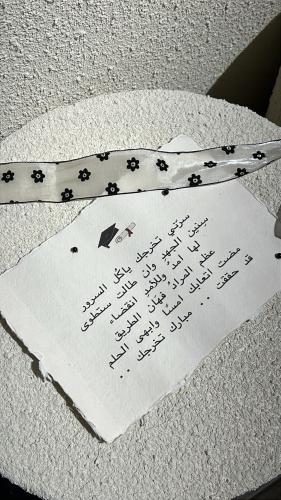 سرّني تخرجك ياكل السرور
سنين الجهد وان طالت ستطوى
لها امدٌ وللأمدِ انقضاء
عظم المراد فهان الطريق
مضت اتعابك امسًا وابهى الحلم
قد حققت ... مبارك تخرجك ..